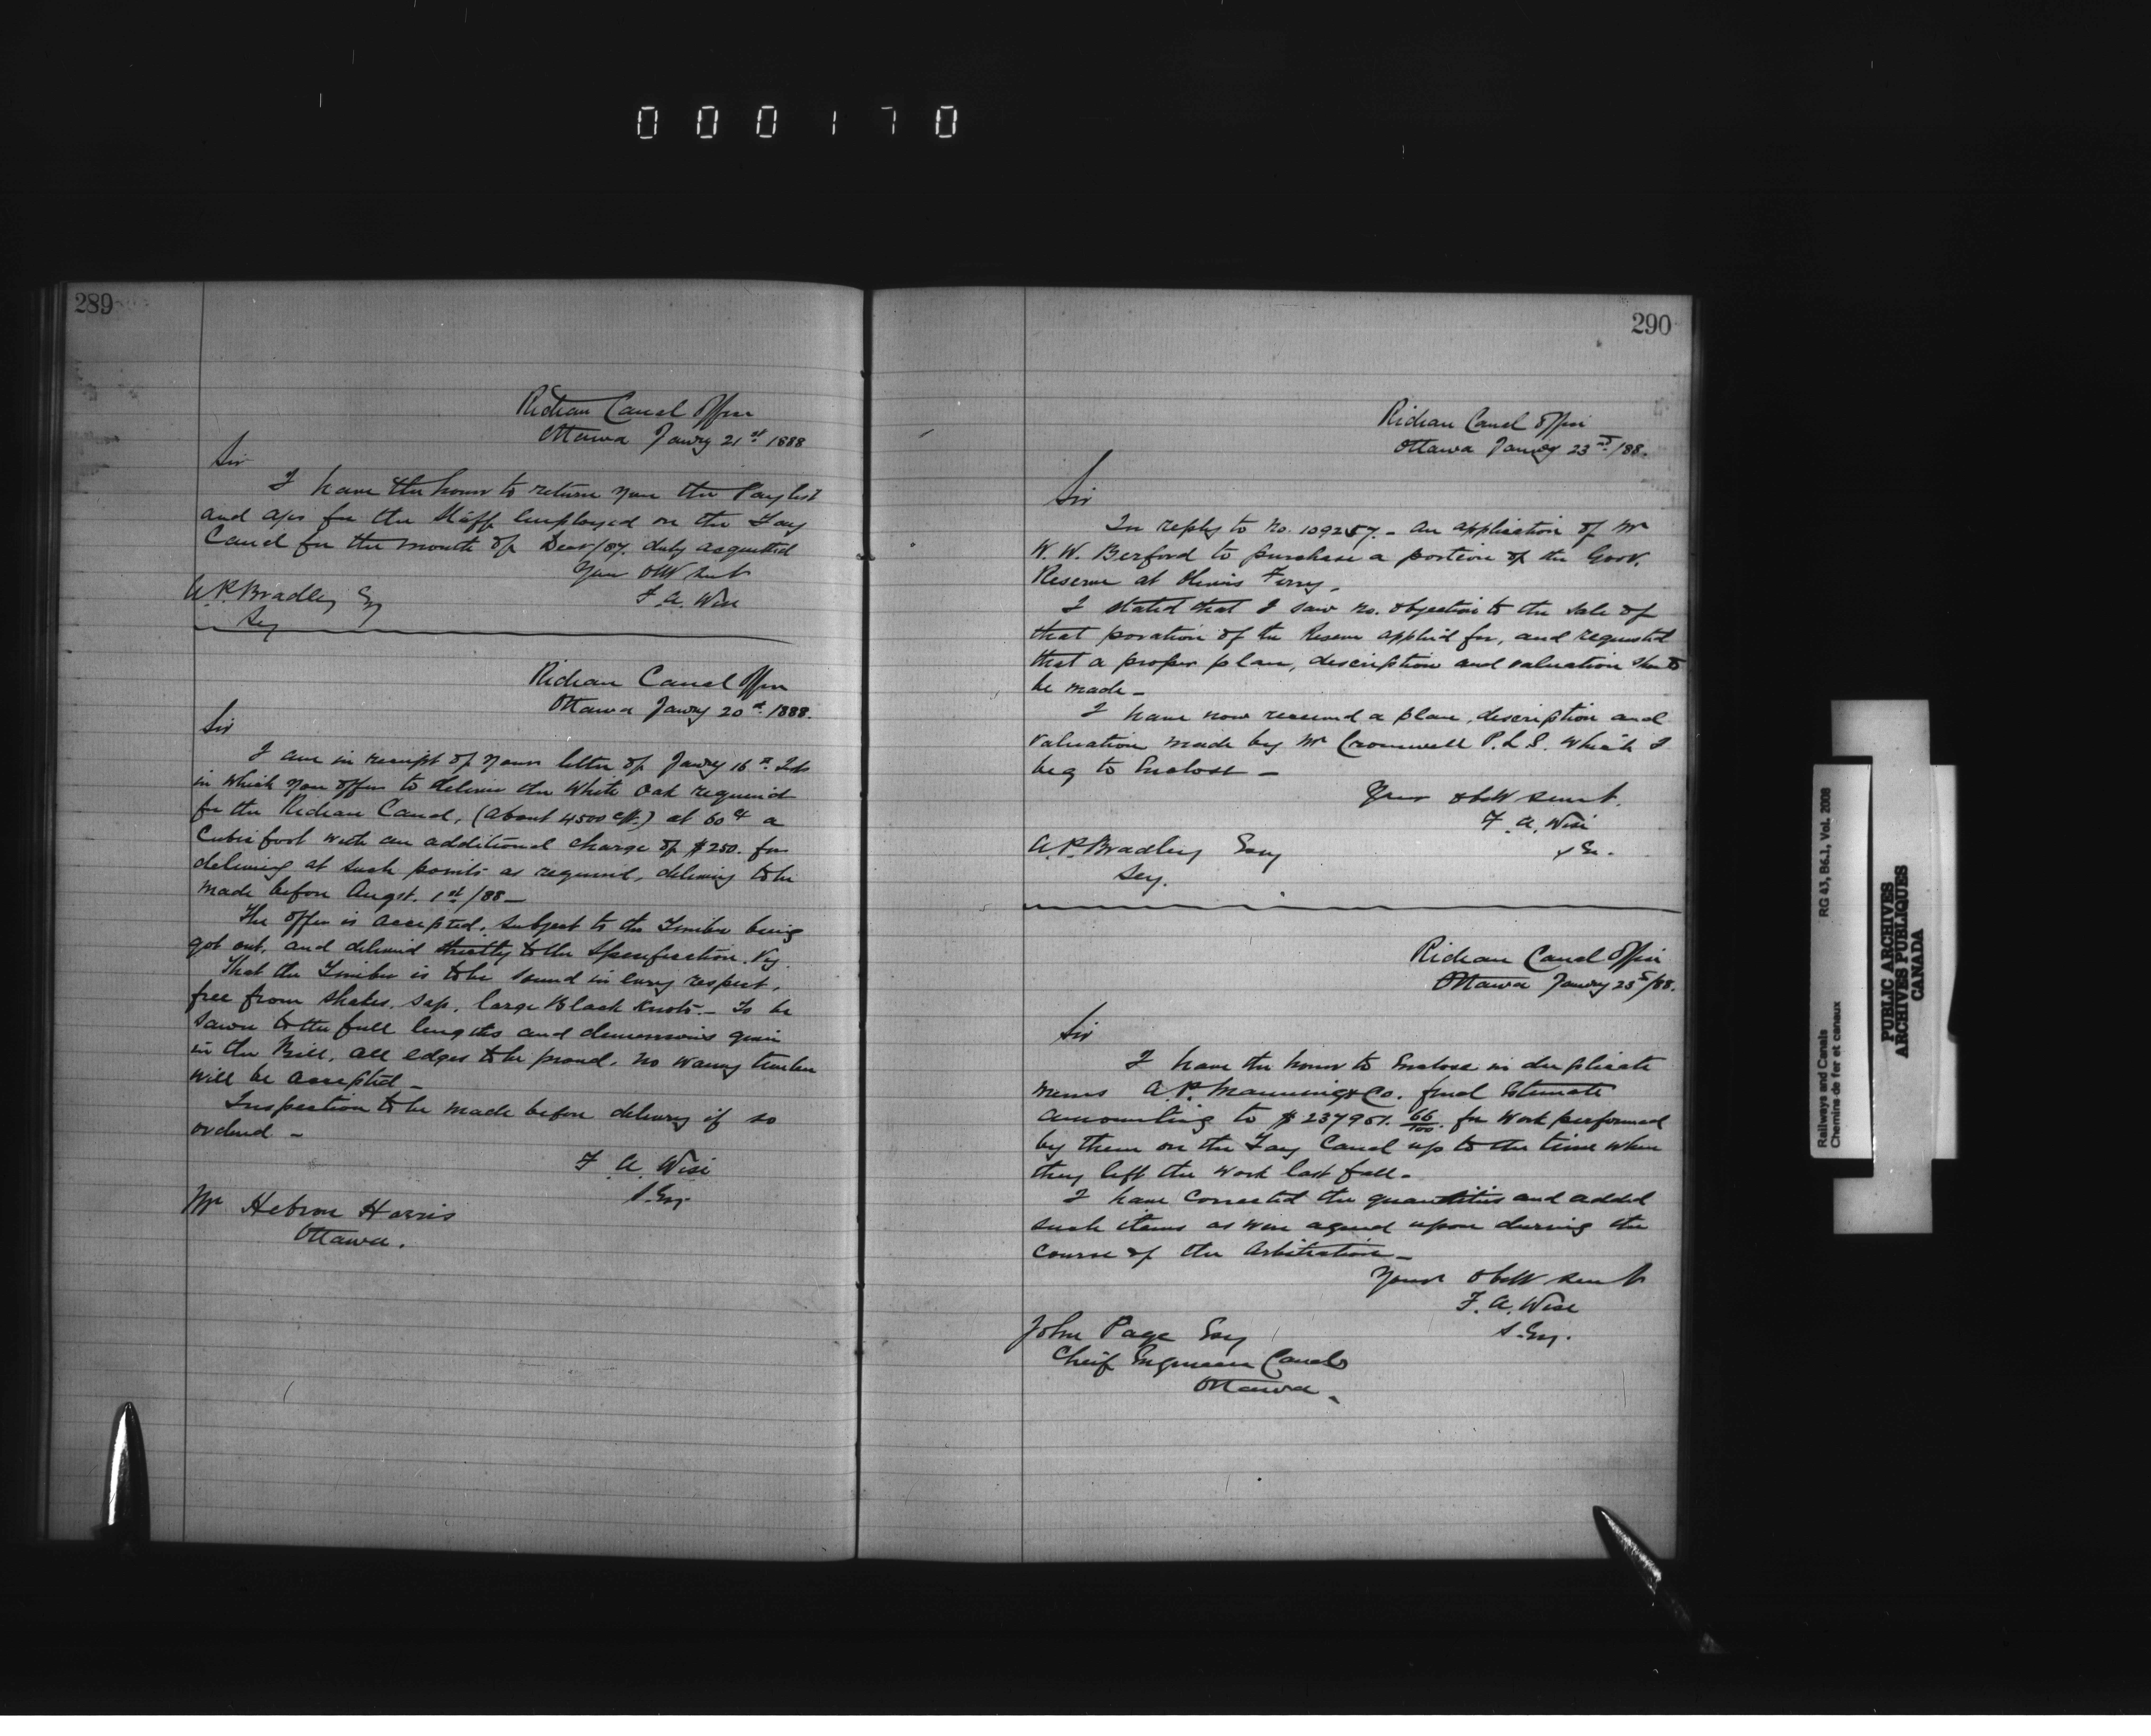 000170
289
Rideau Canal Office
Ottawa Janry 21st 1888
Sir
I have the honor to return you the Paylist
and a/cs for the Staff Employed on the Tay
Canal for the month of Decr/87. duly acquitted
Your Obt Servt
F. A. Wise
A. P. Bradley Esq
Secy
Rideau Canal Office
Ottawa Janry 20th 1888.
Sir
I am in receipt of your letter of Janry 16th Inst
in which you offer to deliver the White Oak required
for the Rideau Canal, (about 4500 cft.) at 60cts a
Cubic foot with an additional charge of $250. for
delivering at such points as required, delivery to be
made before Augst. 1st/88 —
The offer is accepted, subject to the Timber being
got out, and delivered strictly to the Specification. Viz.
That the Timber is to be sound in every respect,
free from shakes, sap, large Black Knots — To be
sawn to the full lengths and dimensions given
in the Bill, all edges to be proud, no waney timber
will be accepted —
Inspection to be made before delivery if so
ordered —
F. A. Wise
S. Eng.
Mr Hebron Harris
Ottawa.
290
Rideau Canal Office
Ottawa Janry 23rd/88.
Sir
In reply to No. 109257 — An application of Mr
W. W. Berford to purchase a portion of the Govt.
Reserve at Olivers Ferry —
I stated that I saw no objection to the sale of
that poration of the Reserve applied for, and requested
that a proper plan, description and valuation should
be made —
I have now received a plan, description and
valuation made by Mr Cromwell P. L. S. which I
beg to Enclose —
Your obdt Servt.
F. A. Wise
S En.
A. P. Bradley Esq
Secy.
Rideau Canal Office
Ottawa Janry 25th/88.
Sir
I have the honor to Enclose in duplicate
Messrs A. P. Manning & Co. final Estimate
amounting to $237951. 66/100. for Work performed
by them on the Tay Canal up to the time when
they left the work last fall —
I have corrected the quantities and added
such items as were agreed upon durring the
course of the Arbitration —
Your obdt Servt
F. A. Wise
S. Eng.
John Page Esq
Cheif Engineer Canals
Ottawa.
Railways and Canals RG 43, B6.1, Vol. 2008
Chemins de fer et canaux
PUBLIC ARCHIVES
ARCHIVES PUBLIQUES
CANADA